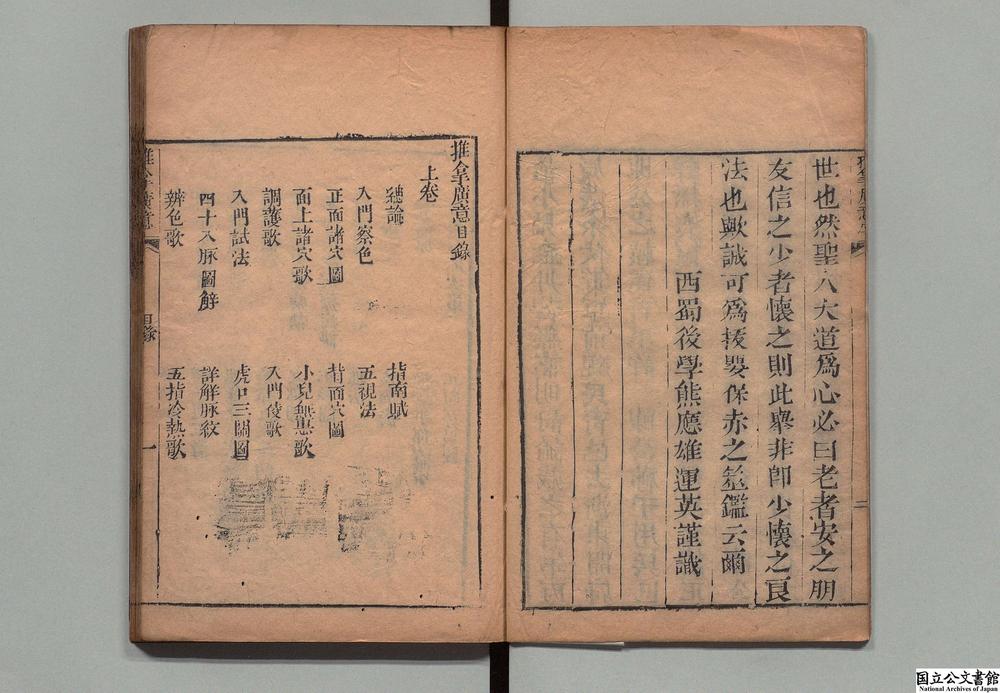 世也然聖人大道爲心必曰老者安之朋
友信之少者懷之則此舉非卽少懷之良
法也歟誠可爲援嬰保赤之龜鑑云爾
西蜀後學熊應雄運英謹識
二
推拿廣意目錄
上卷
總論
指南賦
入門察色
五視法
正面諸穴圖
背面穴圖
面上諸穴歌
小兒無患歌
調護歌
入門候歌
入門試法
虎口三關圖
四十八脉圖觧
詳解脉紋
辨色歌
五指冷熱歌
推拿廣意
目錄
一
国立公文書館
National Archives of Japan